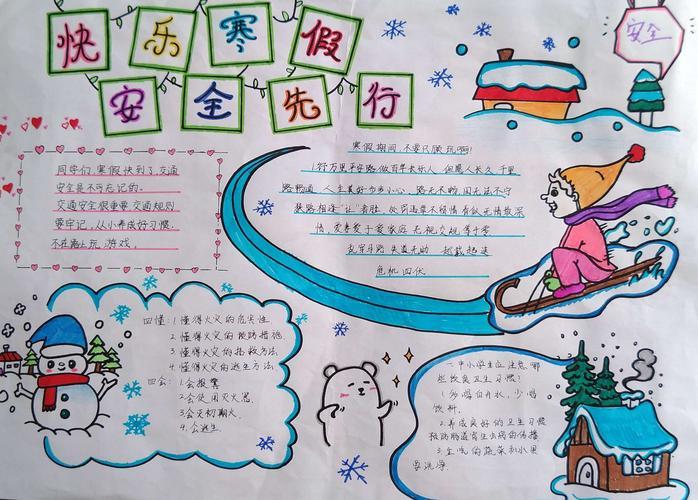 快乐寒假
安全先行
安全
同学们,寒假快到了,交通
安全是不可忘记的。
交通安全很重要,交通规则
要牢记,从小养成好习惯.
不在路上玩游戏.
寒假期间,不要只顾玩啊!
行万里平安路 做百年长乐人 但愿人长久 千里
路畅通 人生美好步步小心
情 爱妻爱子爱家庭 无视交规等于零
危机四伏
四懂:1懂得火灾的危害性
2.懂得火灾的预防措施
3.懂得火灾的扑救方法
4.懂得火灾的逃生方法
四会:1会报警
2会使用灭火器
3会灭初期火
4.会逃生
一.中小学生应注意哪
些饮食卫生习惯?
1少喝白开水,少喝
饮料.
2.养成良好的卫生习惯
预防肠道寄生虫病的传播
3.生吃的蔬菜和水果
要洗净.